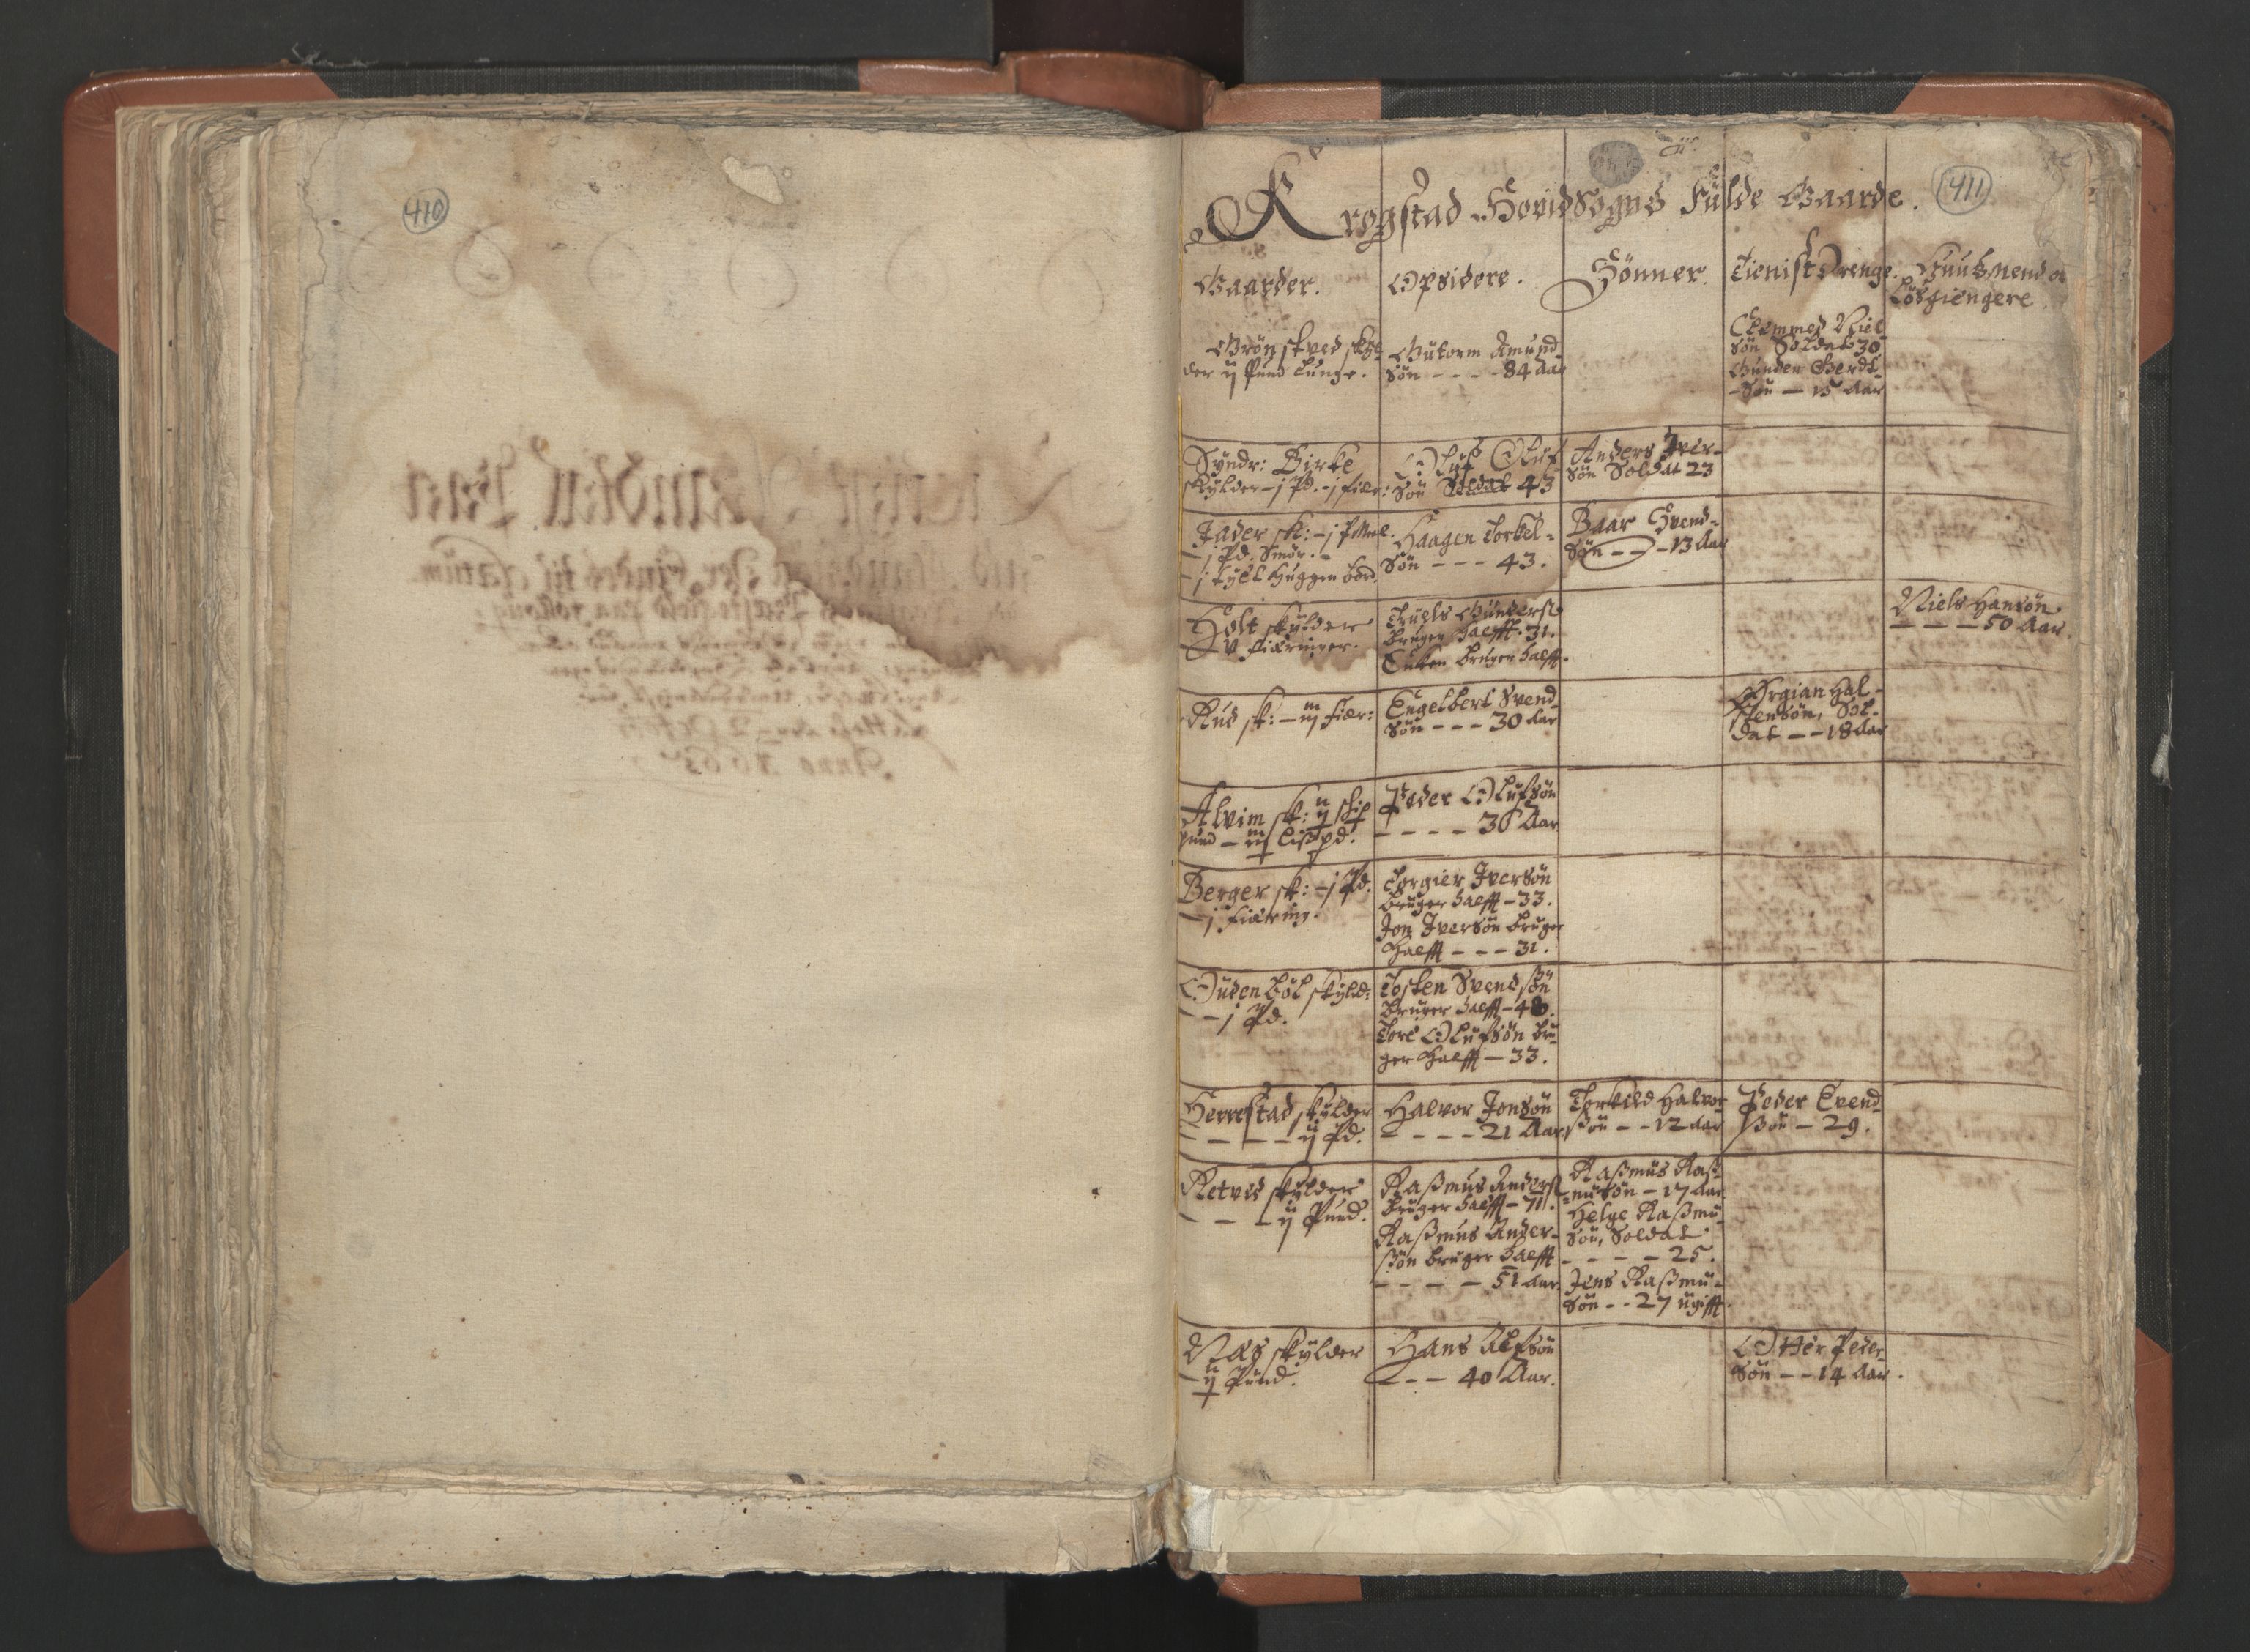 410
411
Krogstad Hovidsogns Fulde Gaarde.
Gaarder.
Opsidere.
Sönner.
Tienist Drenge.
Huusmend oc
Lösgiengere.
Grönstved skyl-
der ij Pund Tunge.
Gutorm Amund-
Sön - - - - 84 Aar
Clemmed Niel
Sön Soldat 30
Gunder Gerdt-
Sön — 15 Aar
Syndr: Birke
skylder - j Pd. - j fier:
Oluf Oluf
Sön Soldat 43
Anders Iver-
Sön Soldat 23
Jader sk: - j P Meel.
- j Pd. Smör. -
- j tylt Huggen bord.
Haagen Torkel-
Sön - - - 43.
Baar Svend-
Sön - - - 13 Aar
Holt skylder
v fieringer.
Truels Gunderss.
bruger halfft. 31.
Encken bruger halfft.
Niels Hansön
- - - 50 Aar.
Rud sk: - iij fier:
Engelbert Svend
Sön - - - 30 Aar
Örgian Hal-
stensön, Sol-
dat - - 18 Aar
Alvim sk: ij skip
pund - iij lißpd.
Peder Olufsön
- - - - 36 Aar
Berger sk: - j Pd.
- j fiering.
Torgier Iversön
bruger halfft - 33.
Jon Iversön bruger
halfft - - - 31.
Oudenböl skyld:
- j Pd.
Tosten Svendsßön
bruger halfft - 48.
Tore Olufsön bru-
ger halfft - 33.
Herrestad skylder
- - - - ij Pd.
Halvor Jonsön
- - - - 21 Aar
Torkild Halvor
sön - - 12 Aar
Peder Evend
ßön - 29.
Retved skylder
- - - ij Pund.
Raßmus Anderss
bruger halfft - 71.
Raßmus Ander-
ßön bruger halfft
- - - - 51 Aar.
Raßmus Raß-
musön - 17 Aar
Helge Raßmu-
Sön, Soldat
- - - - 25.
Jens Raßmu-
Sön - - 27 ugifft.
Næs skylder
ij Pund.
Hans Alfsön
- - - 40 Aar.
Otter Peder-
Sön - - 14 Aar.